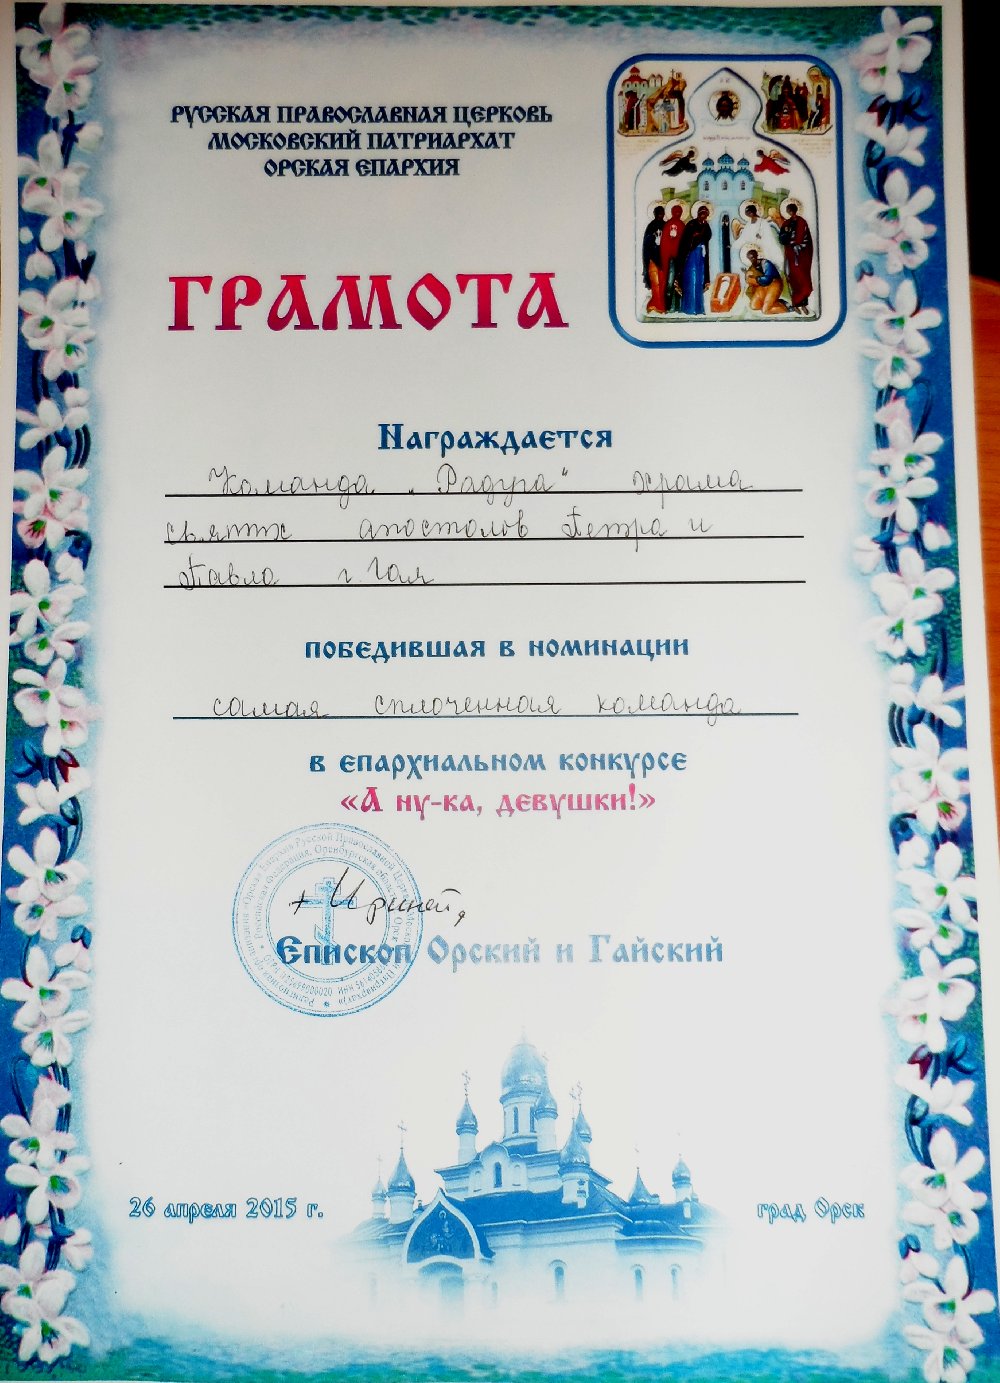 РУССКАЯ ПРАВОСЛАВНАЯ ЦЕРКОВЬ
МОСКОВСКИЙ ПАТРИАРХАТ
ОРСКАЯ ЕПАРХИЯ
ГРАМОТА
Награждается
Команда „Радуга“ храма
святх апостолов Петра и
Павла г. Гая
победившая в номинации
самая сплоченная команда
в епархиальном конкурсе
«А ну-ка, девушки!»
+ Ириней,
Епископ Орский и Гайский
26 апреля 2015 г.
град Орск